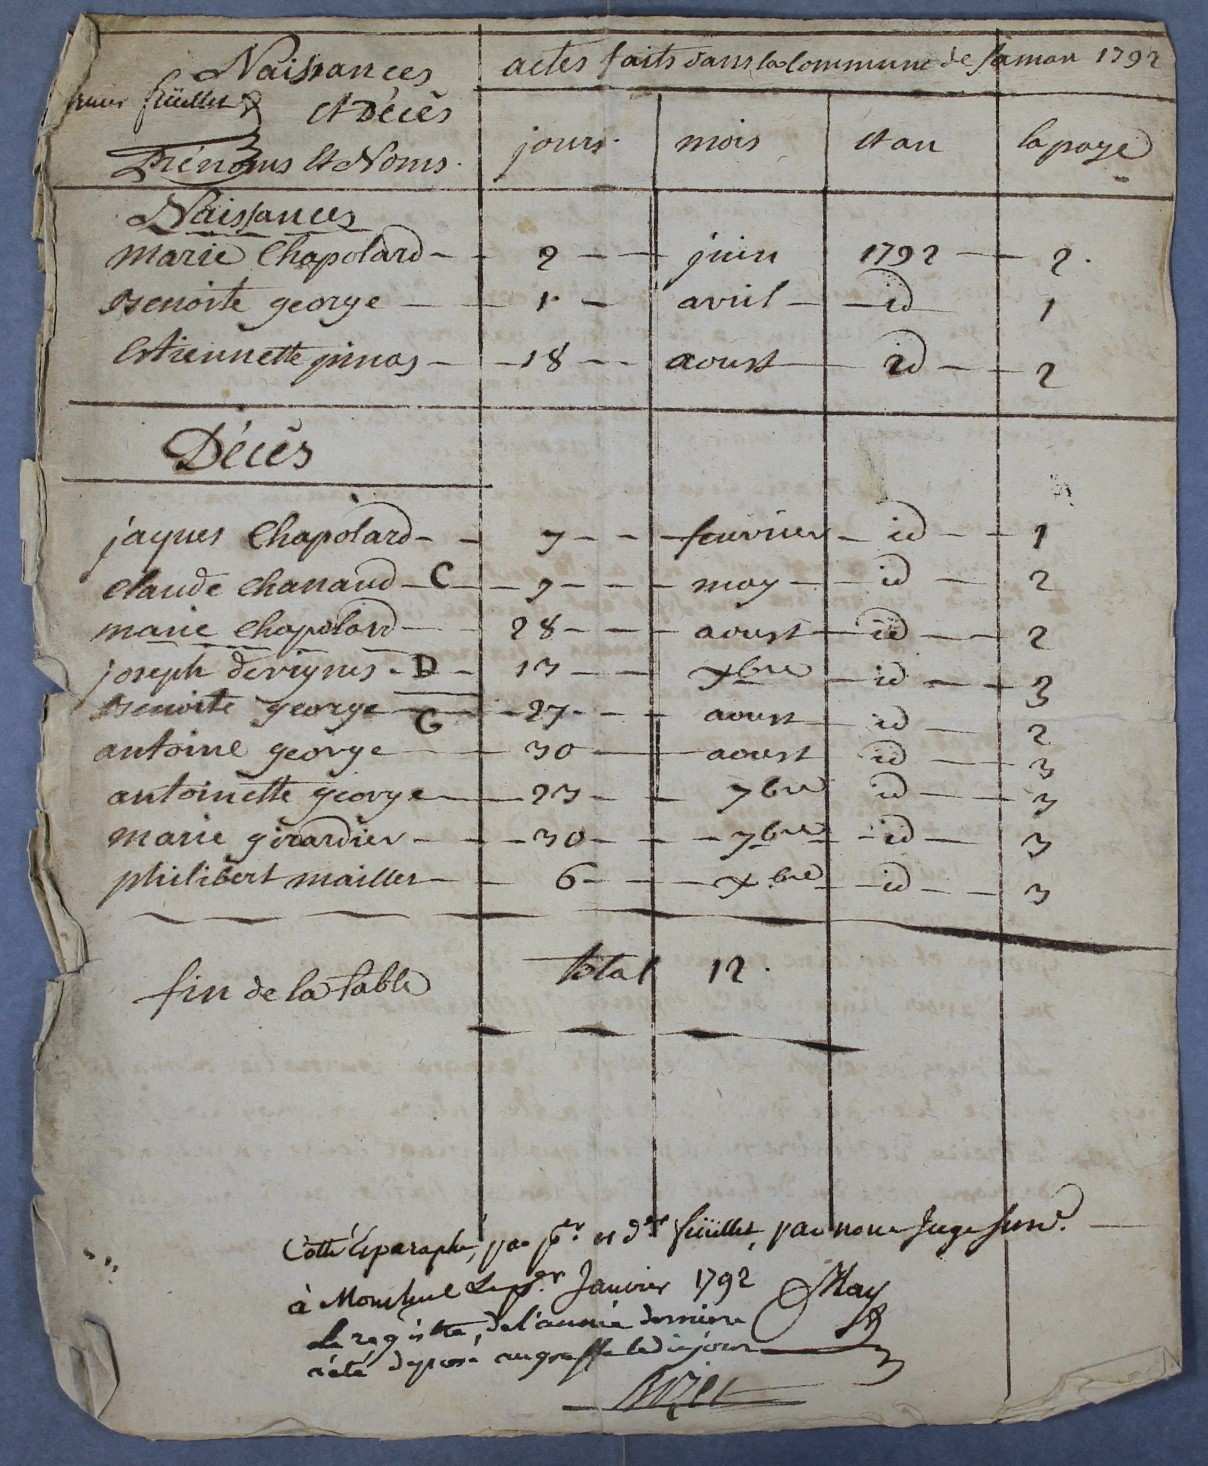 Naissances
feuillet & Et Décès
Prénoms Et Noms.
actes faits dans la Commune de Samans 1792
jours. mois Et an la page
Naissances
marie Chapolard 2 juin 1792 2.
Benoite george 1 avril id 1
Estiennette pinos 18 aoust id 2
Décès
jaques Chapolard 7 feuvrier id 1
Claude Chanaud C 9 may id 2
marie Chapolard 28 aoust id 2
joseph devignes D 13 xbre id 3
Benoite george G 27 aoust id 2
antoine george 30 aoust id 3
antoinette george 23 7bre id 3
marie girardier 30 7bre id 3
philibert maillet 6 xbre id 3
fin de la table total 12.
Cotté Et paraphé, par per et der feüillet, par nous Juge
à Montluel Le per Janvier 1792 May
Le registre, de l'année derniere
a été deposé au greffe ledit jour